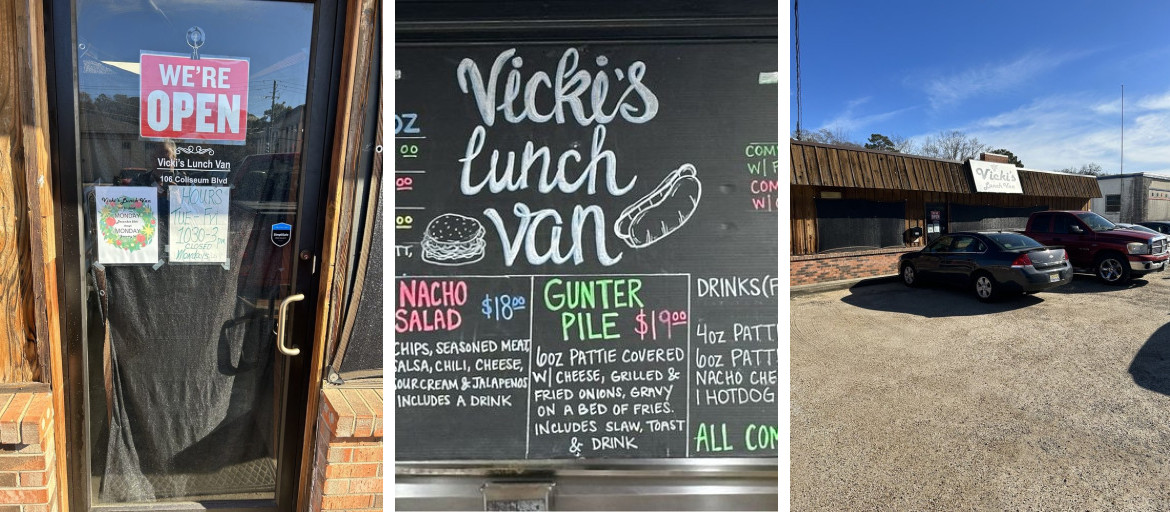 WE'RE
OPEN
Vicki's Lunch Van
106 Coliseum Blvd
Vicki's Lunch Van
MONDAY
MONDAY
HOURS
TUE-Fri
1030-3pm
CLOSED
Mondays
Vicki's
lunch
van
OZ
00
00
00
TT,
COM
W/ F
COM
W/
NACHO
SALAD
$18.00
CHIPS, SEASONED MEAT,
SALSA, CHILI, CHEESE,
SOUR CREAM & JALAPENOS
INCLUDES A DRINK
GUNTER
PILE
$19.00
6OZ PATTIE COVERED
W/ CHEESE, GRILLED &
FRIED ONIONS, GRAVY
ON A BED OF FRIES.
INCLUDES SLAW, TOAST
& DRINK
DRINKS(F
4OZ PATT
6OZ PATT
NACHO CHE
1 HOTDOG
ALL COM
Vicki's
Lunch Van